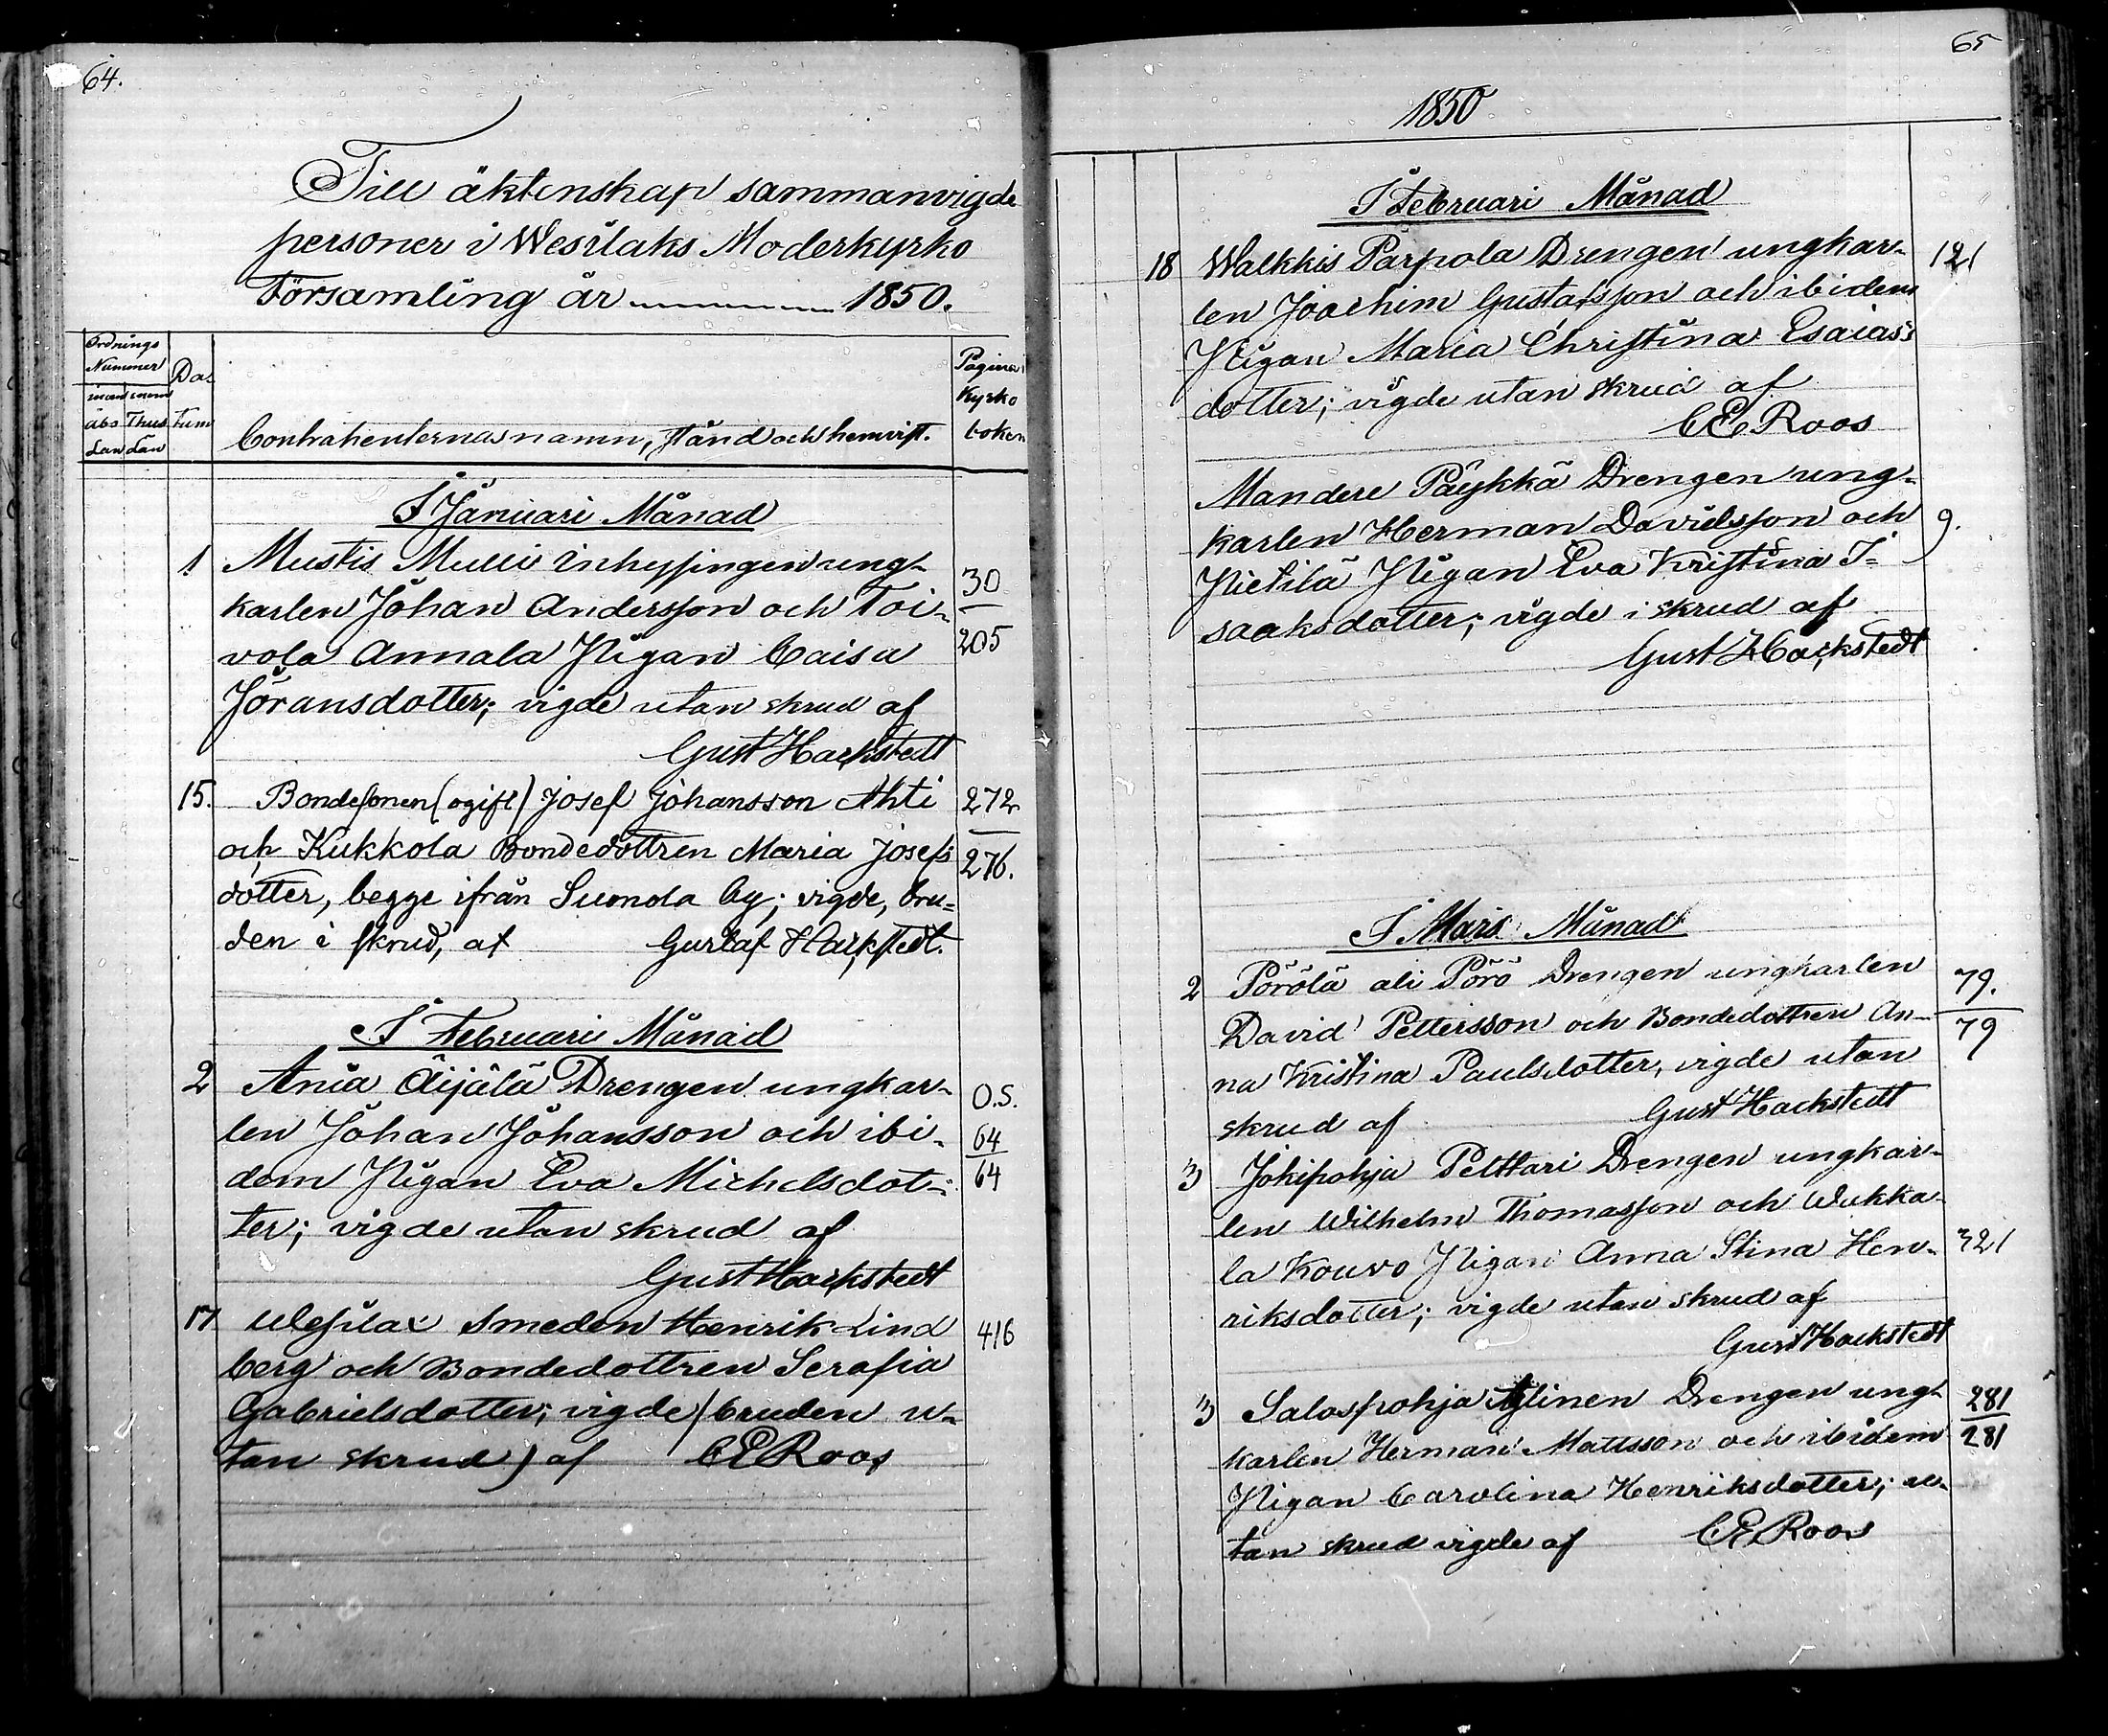 64.
Till äktenskap sammanvigde
personer i Wesilaks Moderkyrko
Församling år 1850.
Ordnings
Nummer
Da
tum
inom inom
åbs Thus
Lan Lan
Contrahenternas namn, stånd och hemvist.
Pagina i
Kyrko
boken
I Januari Månad
1 Mustis Mulli Inhysingen ung-
karlen Johan Andersson och Toi- 30
vola Annala Pigan Caisa 205
Jöransdotter; vigde utan skrud af
Gust Hackstedt
15. Bondesonen (ogift) Josef Johansson Ahti 272
och Kukkola Bondedottren Maria Josefs 276.
dotter, begge ifrån Suomela by; vigde, bru=
den i skrud, af Gustaf Hackstedt.
I Februari Månad
2 Ania Äijälä Drengen ungkar- O.S.
len Johan Johansson och ibi- 64
dem Pigan Eva Michelsdot- 64
ter; vigde utan skrud af
Gust Hackstedt
17 Wesilax Smeden Henrik Lind 416
berg och Bondedottren Serafia
Gabrielsdotter; vigde (bruden u-
tan skrud) af C E Roos
65
1850
I Februari Månad
18 Walkkis Parpola Drengen ungkar- 121
len Joachim Gustafsson och ibidem
Pigan Maria Christina Esaias
dotter; vigde utan skrud af
C E Roos
Mandere Päykkä Drengen ung-
karlen Herman Davidsson och 9.
Pietilä Pigan Eva Kristina I=
saaksdotter; vigde i skrud af
Gust Hackstedt
I Mars Månad
2 Pörölä ali Pörö Drengen ungkarlen 79.
David Pettersson och Bondedottren An- 79
na Kristina Paulsdotter, vigde utan
skrud af Gust Hackstedt
3 Jokipohja Pelttari Drengen ungkar-
len Wilhelm Thomasson och Wakka-
la Kouvo Pigan Anna Stina Hen- 321
riksdotter; vigde utan skrud af
Gust Hackstedt
3 Salospohja Drengen ung- 281
karlen Herman Mattsson och ibidem 281
Pigan Carolina Henriksdotter; u-
tan skrud vigde af C E Roos